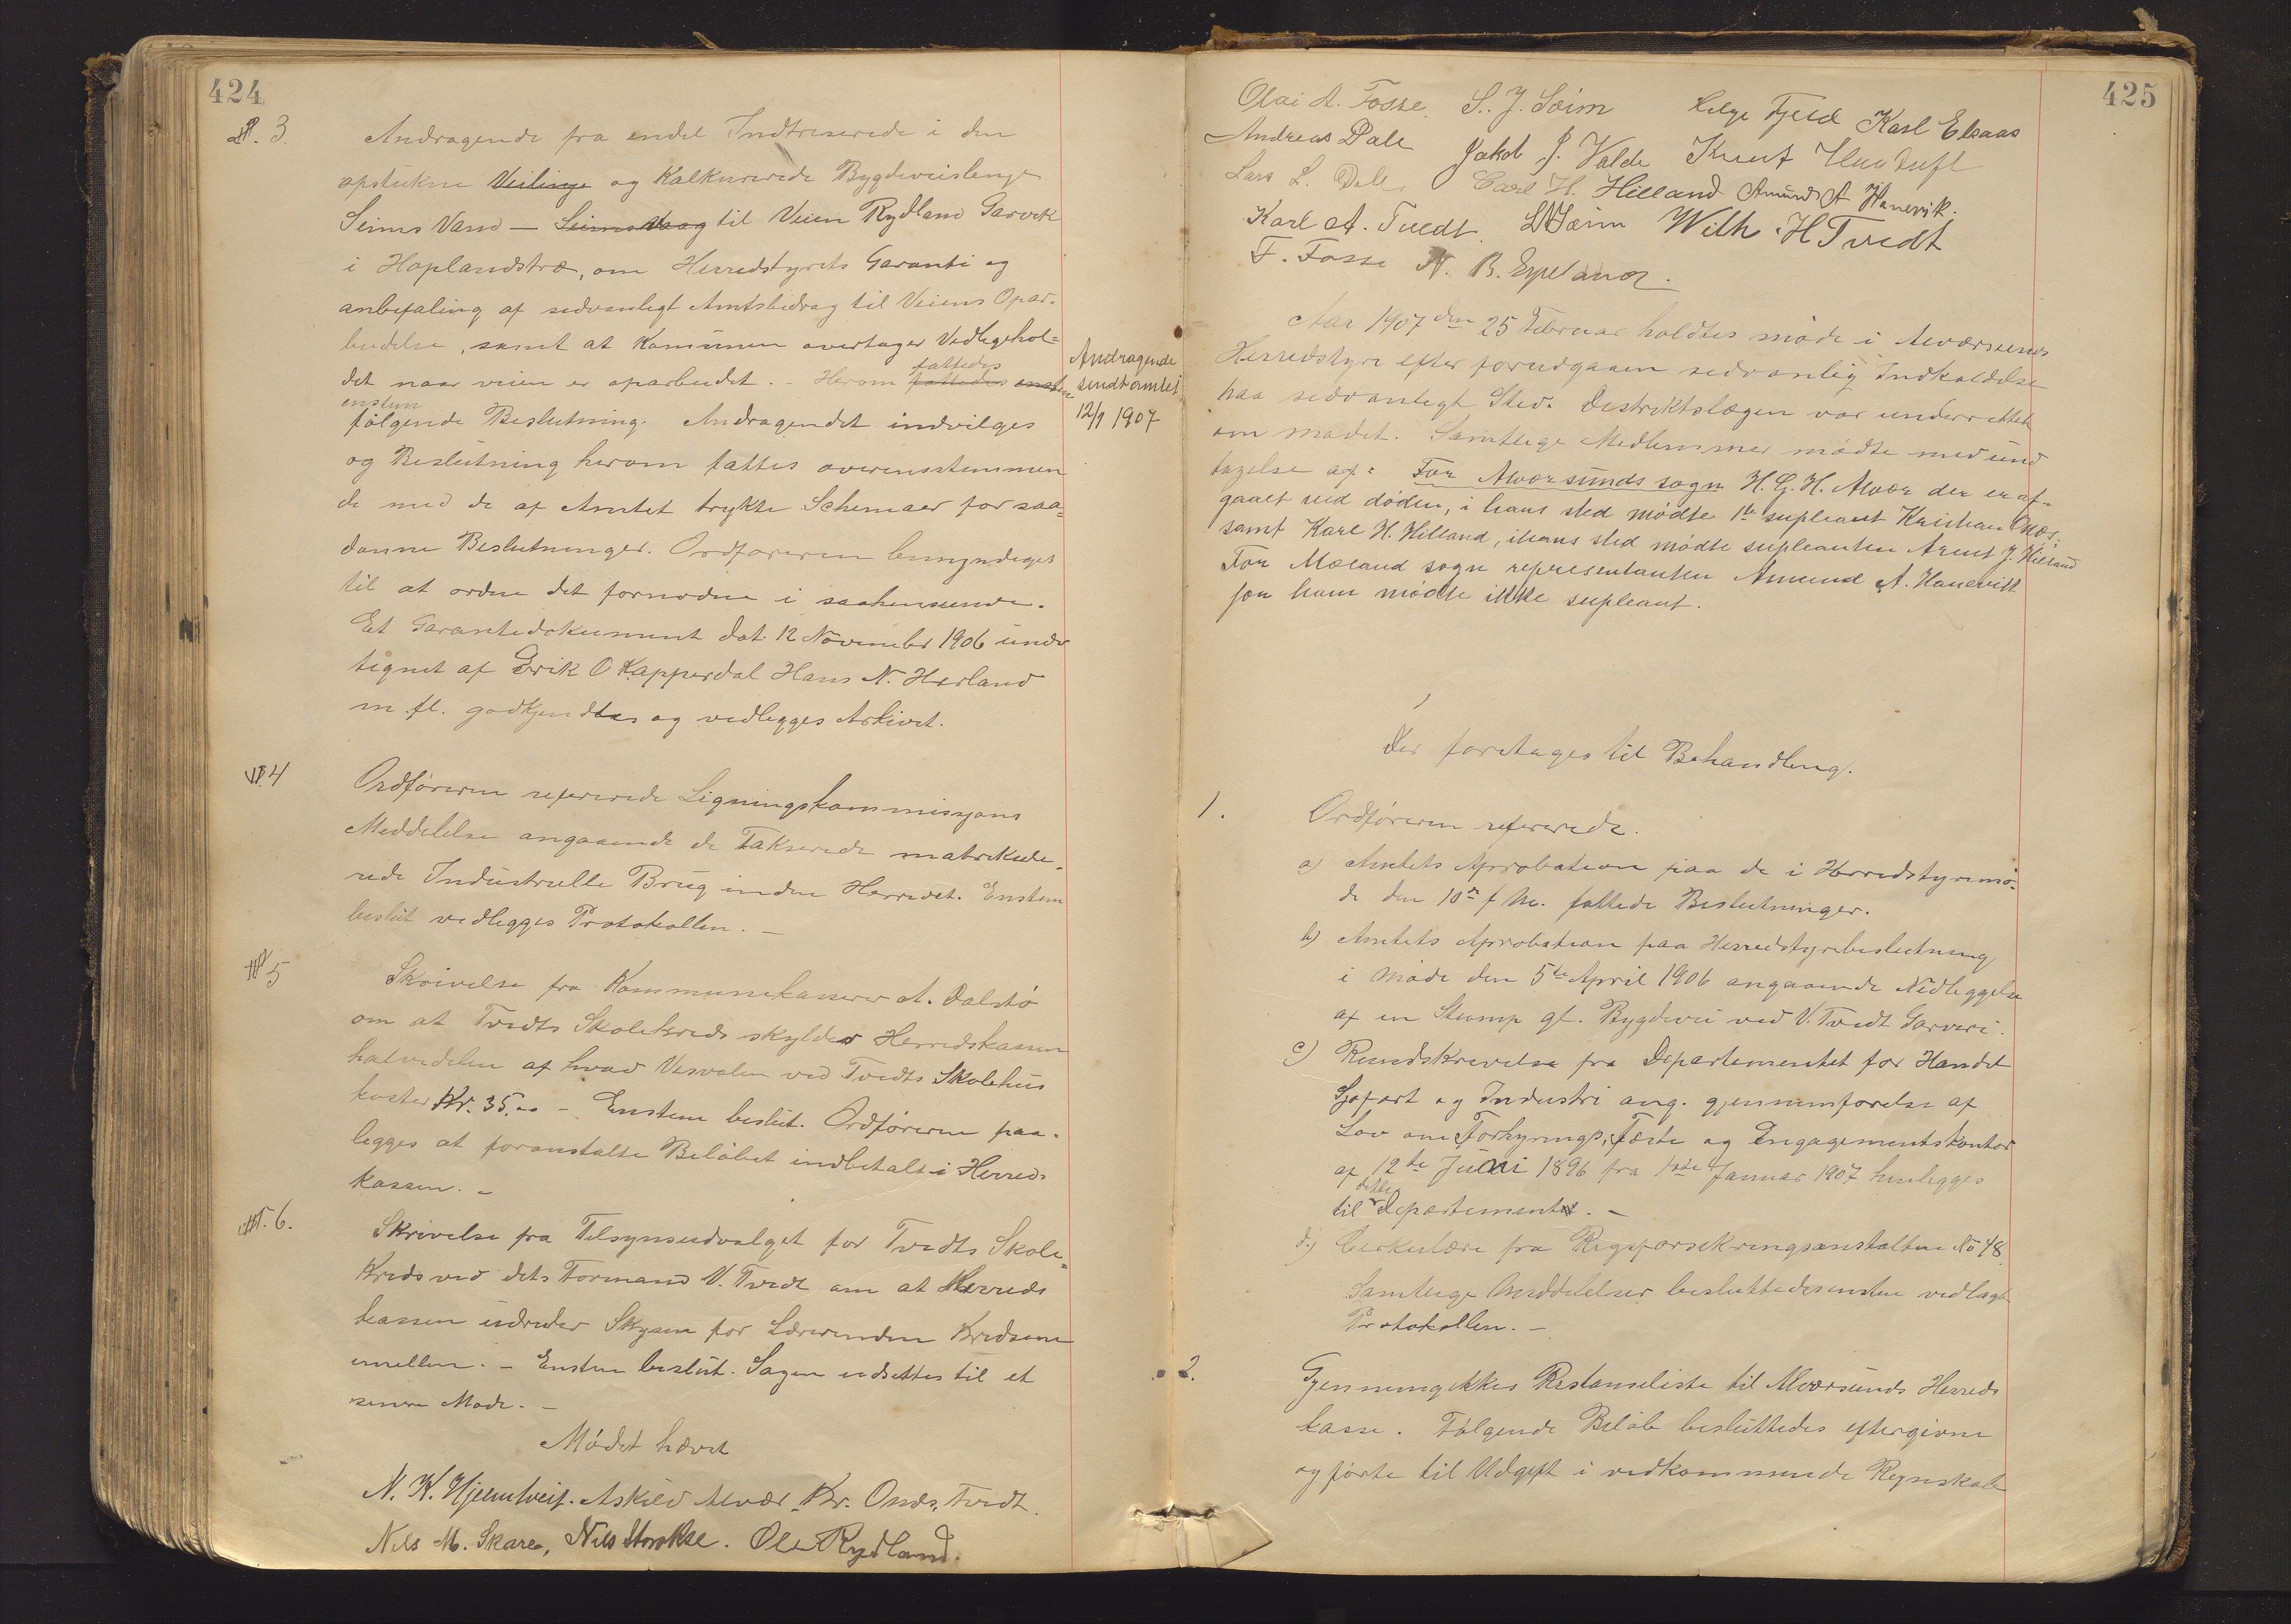 424
3.
Andragende fra endel Indtreserede i den
opstukne Veilinge og Kalkurerede Bygdeveislenge
Seims Vand — Seims Vaag til Veien Rydland Garvik
i Hoplandstræ, om Herredstyrets Garanti og
anbefaling af sedvanligt Amtsbidrag til Veiens Opar-
beidelse, samt at Komunen overtager Vedligehol-
det naar veien er oparbeidet. - Herom fattedes fattedes enstem
enstem
følgende Beslutning. Andragendet indvilges
og Beslutning herom fattes overensstemmen
de med de af Amtet trykte Schemaer for saa-
danne Beslutninger. Ordføreren bemyndiges
til at ordne det fornødne i saahenseende.
Et Garantidokument dat. 12 November 1906 under
tegnet af Erik O Kapperdal Hans N. Herland
m. fl. godkjendtes og vedlegges Arkivet.
Andragende
sendt amtet
12/1 1907
4
Ordføreren refererede Ligningskommissjons
Meddelelse angaaende de Takserede matrikule-
rede Industrielle Brug inden Herredet. Enstem
beslut vedlegges Protokollen. —
5
Skrivelse fra Kommunekasserer A. Dalstø
om at Tvedts Skolekreds skylder Herredskassen
halvdelen af hvad Vasvalen ved Tvedts Skolehus
koster Kr. 35.00 - Enstem beslut. Ordføreren paa-
legges at foranstalte Beløbet indbetalt i Herreds
kassen. -
6.
Skrivelse fra Tilsynsudvalget for Tvedts Skole-
Kreds ved dets Formand V. Tvedt om at Herreds
kassen udreder Skysen for Lærerinden Kredsene
imellem. - Enstem beslut. Sagen udsettes til et
senere Møde. -
Mødet hævet
N. K. Hjelmtveit. Askild Alvær Kr. Onæs, Tvedt.
Nils M. Skare, Nils Storokse. Ole Rydland.
425
Olai A. Fosse. S. J. Seim Helge Fjeld Karl Elsaas
Andreas Dale Jakob J. Valde Knut
Lars L. Dale, Carl H. Hilland Amund A Hanevik.
Karl A. Tvedt. Wilh. H Tvedt
F. Fosse N. B. Eyeland.
Aar 1907 den 25 Februar holdtes møde i Alværsunds
Herredstyre efter forudgaaen sedvanlig Indkaldelse
paa sedvanligt Sted. Destriktslægen var underrettet
om mødet. Samtlige Medlemmer mødte med und
tagelse af: For Alværsunds sogn H. G. H. Alvær der er af-
gaaet ved døden, i hans sted mødte 1te supleant Kristian Onæs.
samt Karl H. Hilland, i hans sted mødte supleanten Arent J. Hilland
For Mæland sogn representanten Amund A. Hanevik
for ham mødte ikke supleant.
Der foretages til Behandling.
1.
Ordføreren refererede.
a) Amtets Aprobation paa de i Herredstyremø-
de den 10de f M. fattede Beslutninger.
b) Amtets Aprobation paa Herredstyrebeslutning
i Møde den 5te April 1906 angaaende Nedleggelse
af en Stump gl. Bygdevei ved V. Tvedt Garveri.
c) Rundskrivelse fra Departementet for Handel
Sjøfart og Industri ang. gjennemførelse af
Lov om Forhyrings, Fæste og Engagementskontor
af 12te Juni 1896 fra 1ste Januar 1907 henlegges
til dette Departement. -
d.) Cirkulære fra Rigsforsikringsanstalten No 48
Samtlige Meddelelser besluttedes enstem vedlagt
Protokollen. -
2.
Gjennemgikkes Restanseliste til Alværsunds Herreds
kasse. Følgende Beløb besluttedes eftergivne
og førte til Udgift i vedkommende Regnskab